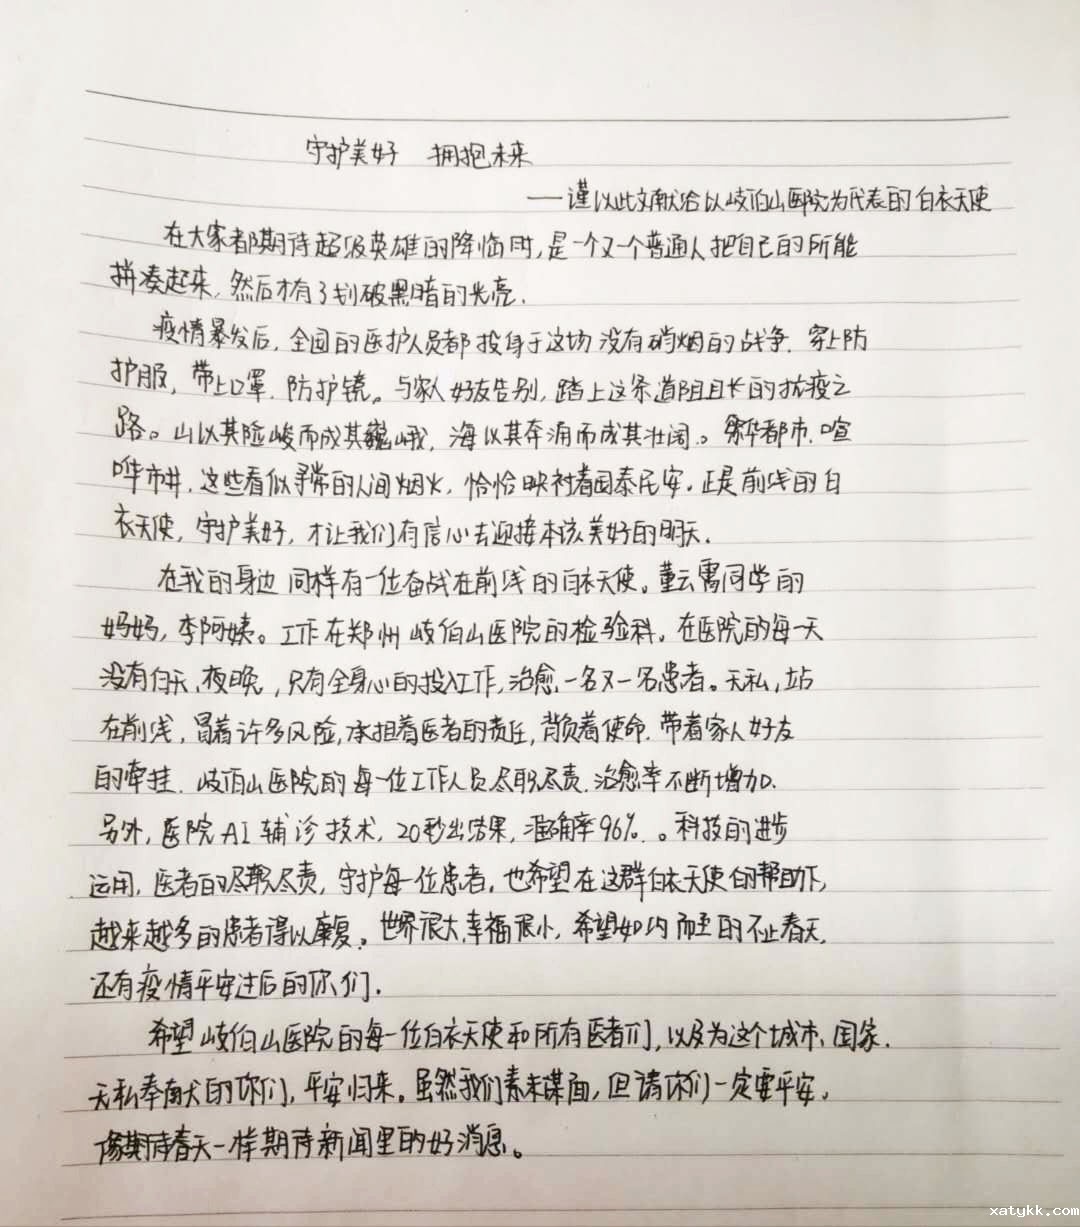 守护美好 拥抱未来
——谨以此文献给以岐伯山医院为代表的白衣天使
在大家都期待超级英雄的降临时,是一个又一个普通人把自己的所能
拼凑起来,然后才有了划破黑暗的光亮.
疫情暴发后,全国的医护人员都投身于这场没有硝烟的战争.穿上防
护服,带上口罩.防护镜。与家人好友告别,踏上这条道阻且长的抗疫之
路。山以其险峻而成其巍峨,海以其奔涌而成其壮阔。繁华都市.喧
哗市井.这些看似寻常的人间烟火,恰恰映衬着国泰民安.正是前线的白
衣天使,守护美好,才让我们有信心去迎接本该美好的明天.
在我的身边同样有一位奋战在前线的白衣天使。董云霄同学的
妈妈,李阿姨。工作在郑州岐伯山医院的检验科.在医院的每一天
没有白天,夜晚,只有全身心的投入工作,治愈一名又一名患者。无私,站
在前线,冒着许多风险,承担着医者的责任,背负着使命.带着家人好友
的牵挂.岐伯山医院的每一位工作人员尽职尽责.治愈率不断增加.
另外,医院AI辅诊技术,20秒出结果,准确率96%.。科技的进步
运用,医者的尽职尽责,守护每一位患者.也希望在这群白衣天使的帮助下,
越来越多的患者得以康复.世界很大,幸福很小,希望如约而至的不止春天,
还有疫情平安过后的你们.
希望岐伯山医院的每一位白衣天使和所有医者们,以及为这个城市、国家.
无私奉献的你们,平安归来。虽然我们素未谋面,但请你们一定要平安,
像期待春天一样期待新闻里的好消息。
xatykk.com